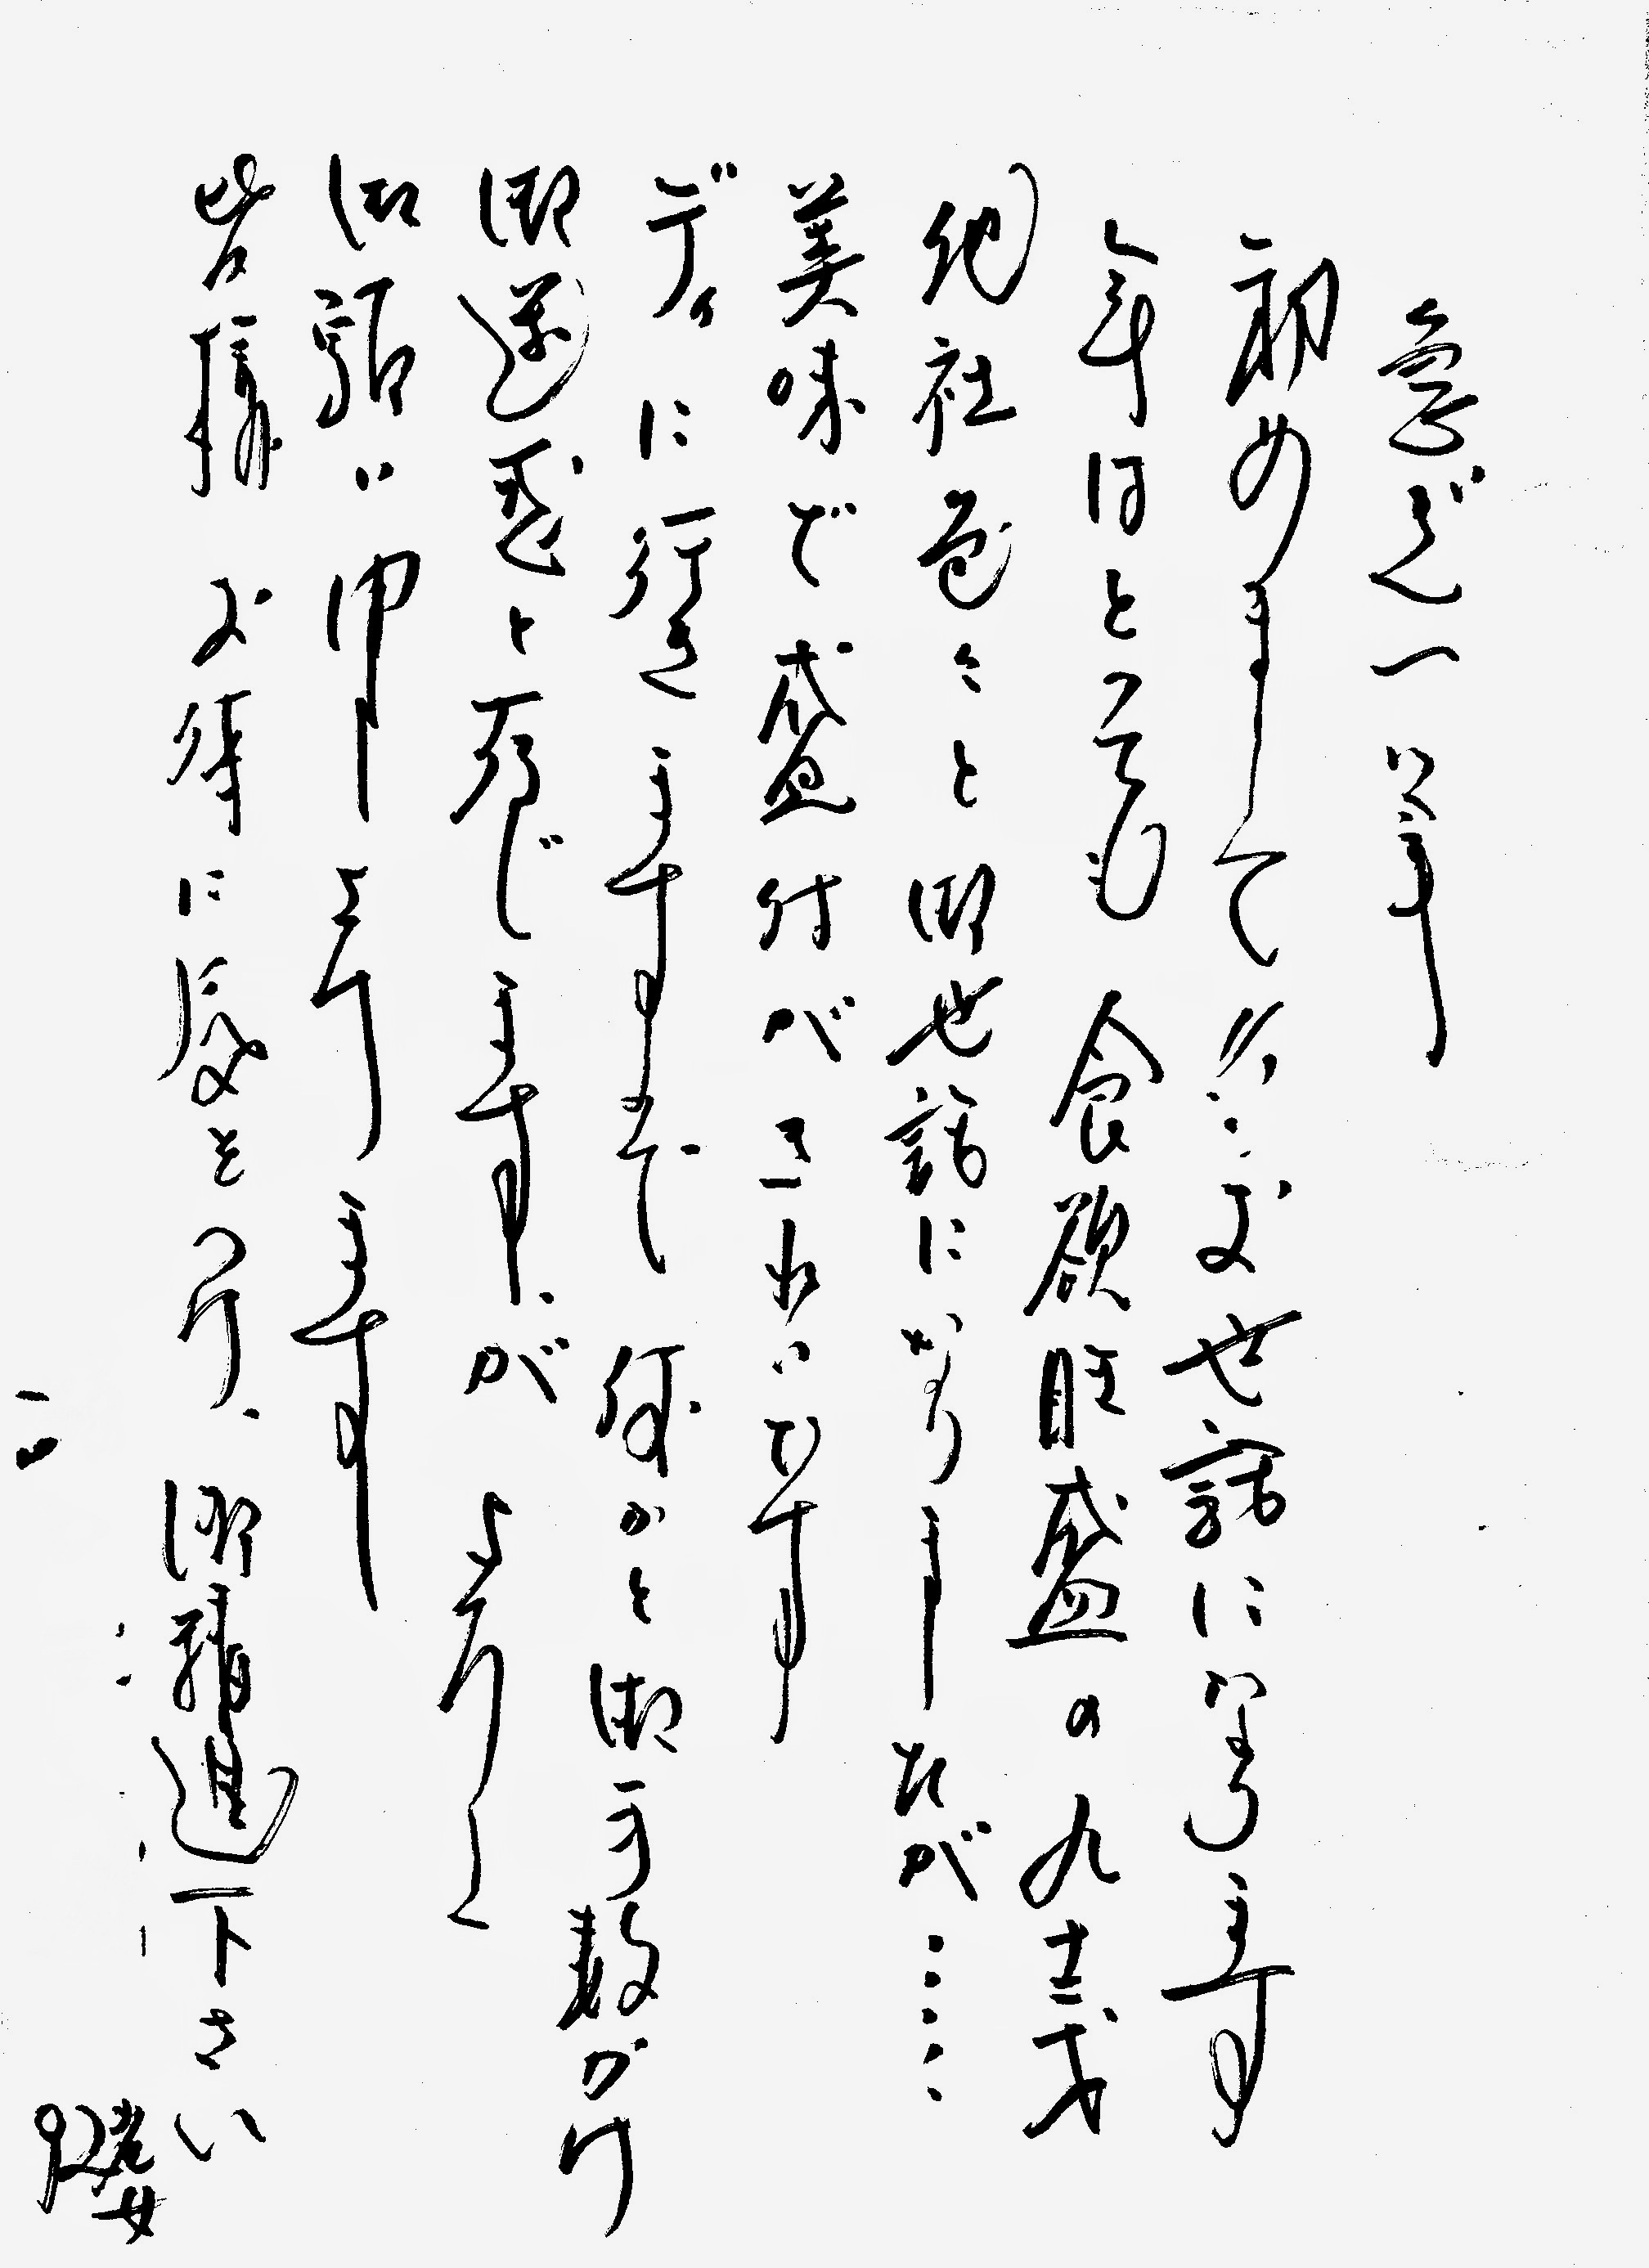 急ぎ一筆
初めまして〃…お世話になります
年はとっても 食欲旺盛の九十二才
他社色々と御世話になりましたが……
美味で盛付がきれいです
デイに行きますまで 何かと御手数かけ
御迷惑と存じますが よろしく
御願い申し上ます
皆様 お体に気をつけ、御精進下さい
92老女